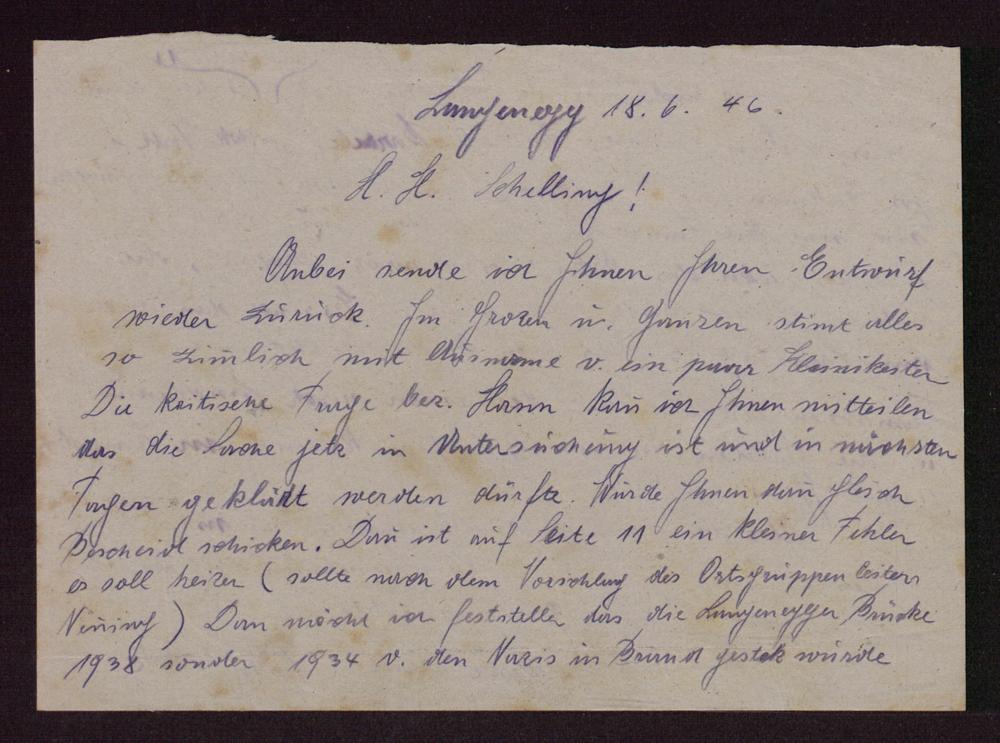 Langenegg 18. 6. 46.
H. H. Schelling!
Anbei sende ich Ihnen Ihren Entwurf
wieder zurück. Im Grozen u. Ganzen stimt alles
so zimlich mit Ausname v. ein paar Kleinikeiten
Die kritische Frage bez. Hann kan ich Ihnen mitteilen
das die Sache jetz in Untersuchung ist und in nächsten
Tagen geklärt werden dürfte. Würde Ihnen dan gleich
Bescheid schicken. Dan ist auf Seite 11 ein kleiner Fehler
es soll heizen (sollte nach dem Vorschlag des Ortsgruppen leiters
) Dan möcht ich feststellen das die Langenegger Brücke
1938 sonder 1934 v. den Nazis in Brand gestek würde